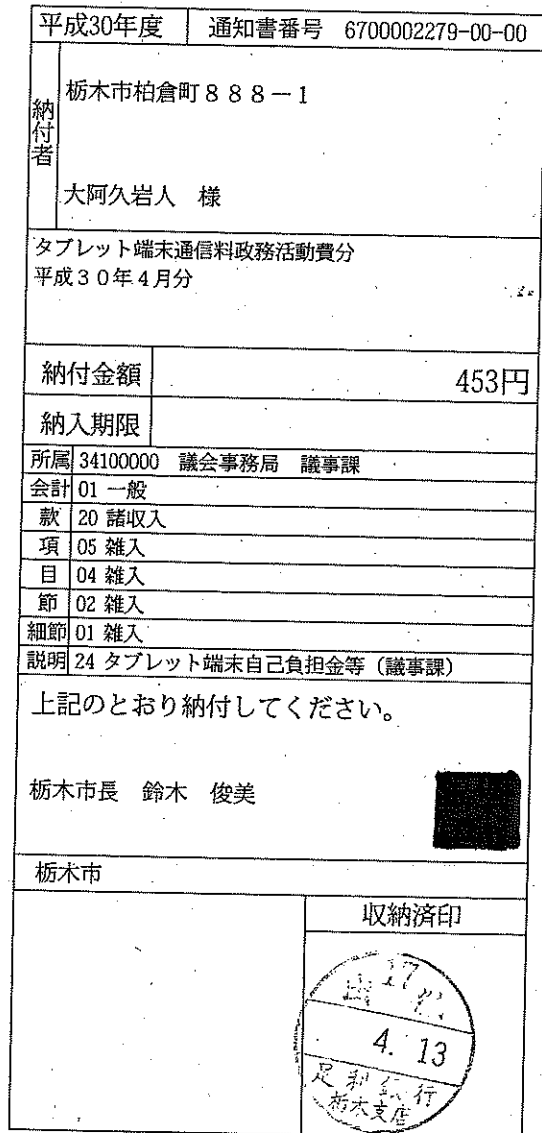 平成30年度 通知書番号 6700002279-00-00
納付者
栃木市柏倉町888-1
大阿久岩人 様
タブレット端末通信料政務活動費分
平成30年4月分
納付金額 453円
納入期限
所属 34100000 議会事務局 議事課
会計 01 一般
款 20 諸収入
項 05 雑入
目 04 雑入
節 02 雑入
細節 01 雑入
説明 24 タブレット端末自己負担金等(議事課)
上記のとおり納付してください。
栃木市長 鈴木 俊美
栃木市
収納済印
17
4. 13
足利銀行
栃木支店